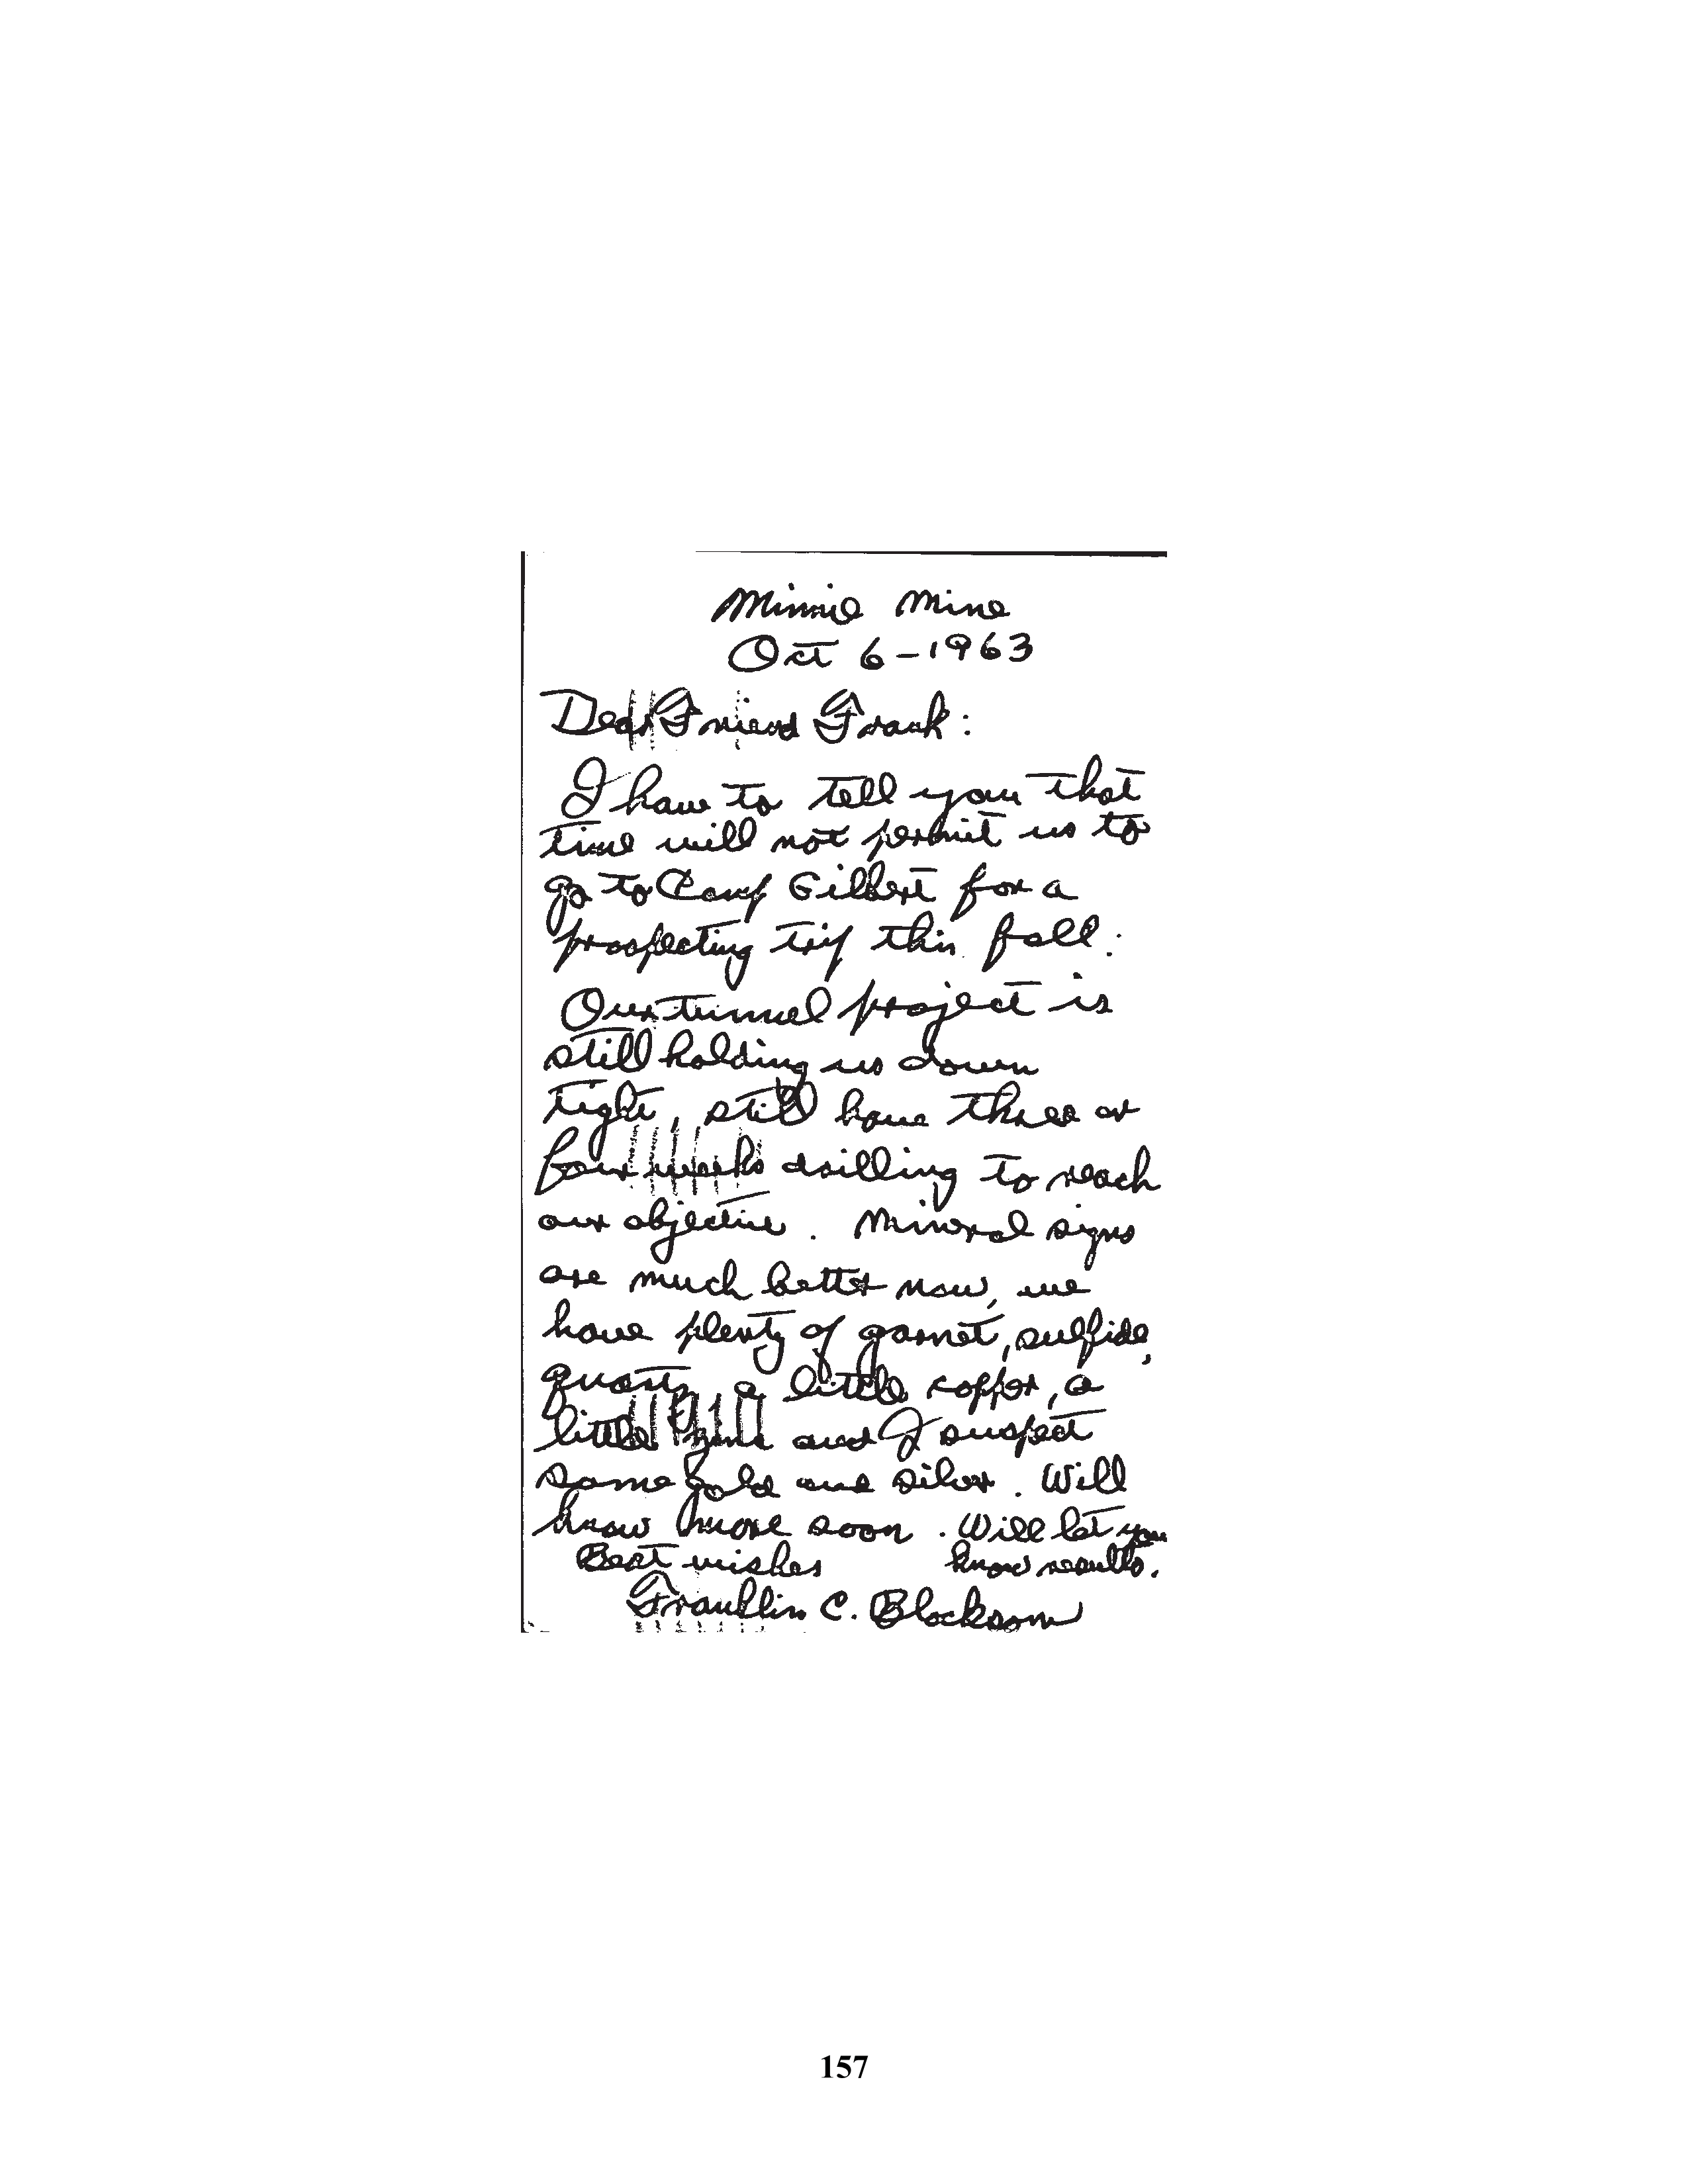 Minnie Mine
Oct 6-1963
Dear Friend Frank:
I have to tell you that
time will not permit us to
go to Camp Gilbert for a
prospecting trip this fall.
Our tunnel project is
still holding us down
tight, still have three or
four weeks drilling to reach
our objective. Mineral signs
are much better now, we
have plenty of garnet, sulfide,
quartz, a little copper, a
little zinc and I suspect
some gold and silver. Will
know more soon. Will let you
Best wishes know results.
Franklin C. Blockson
157